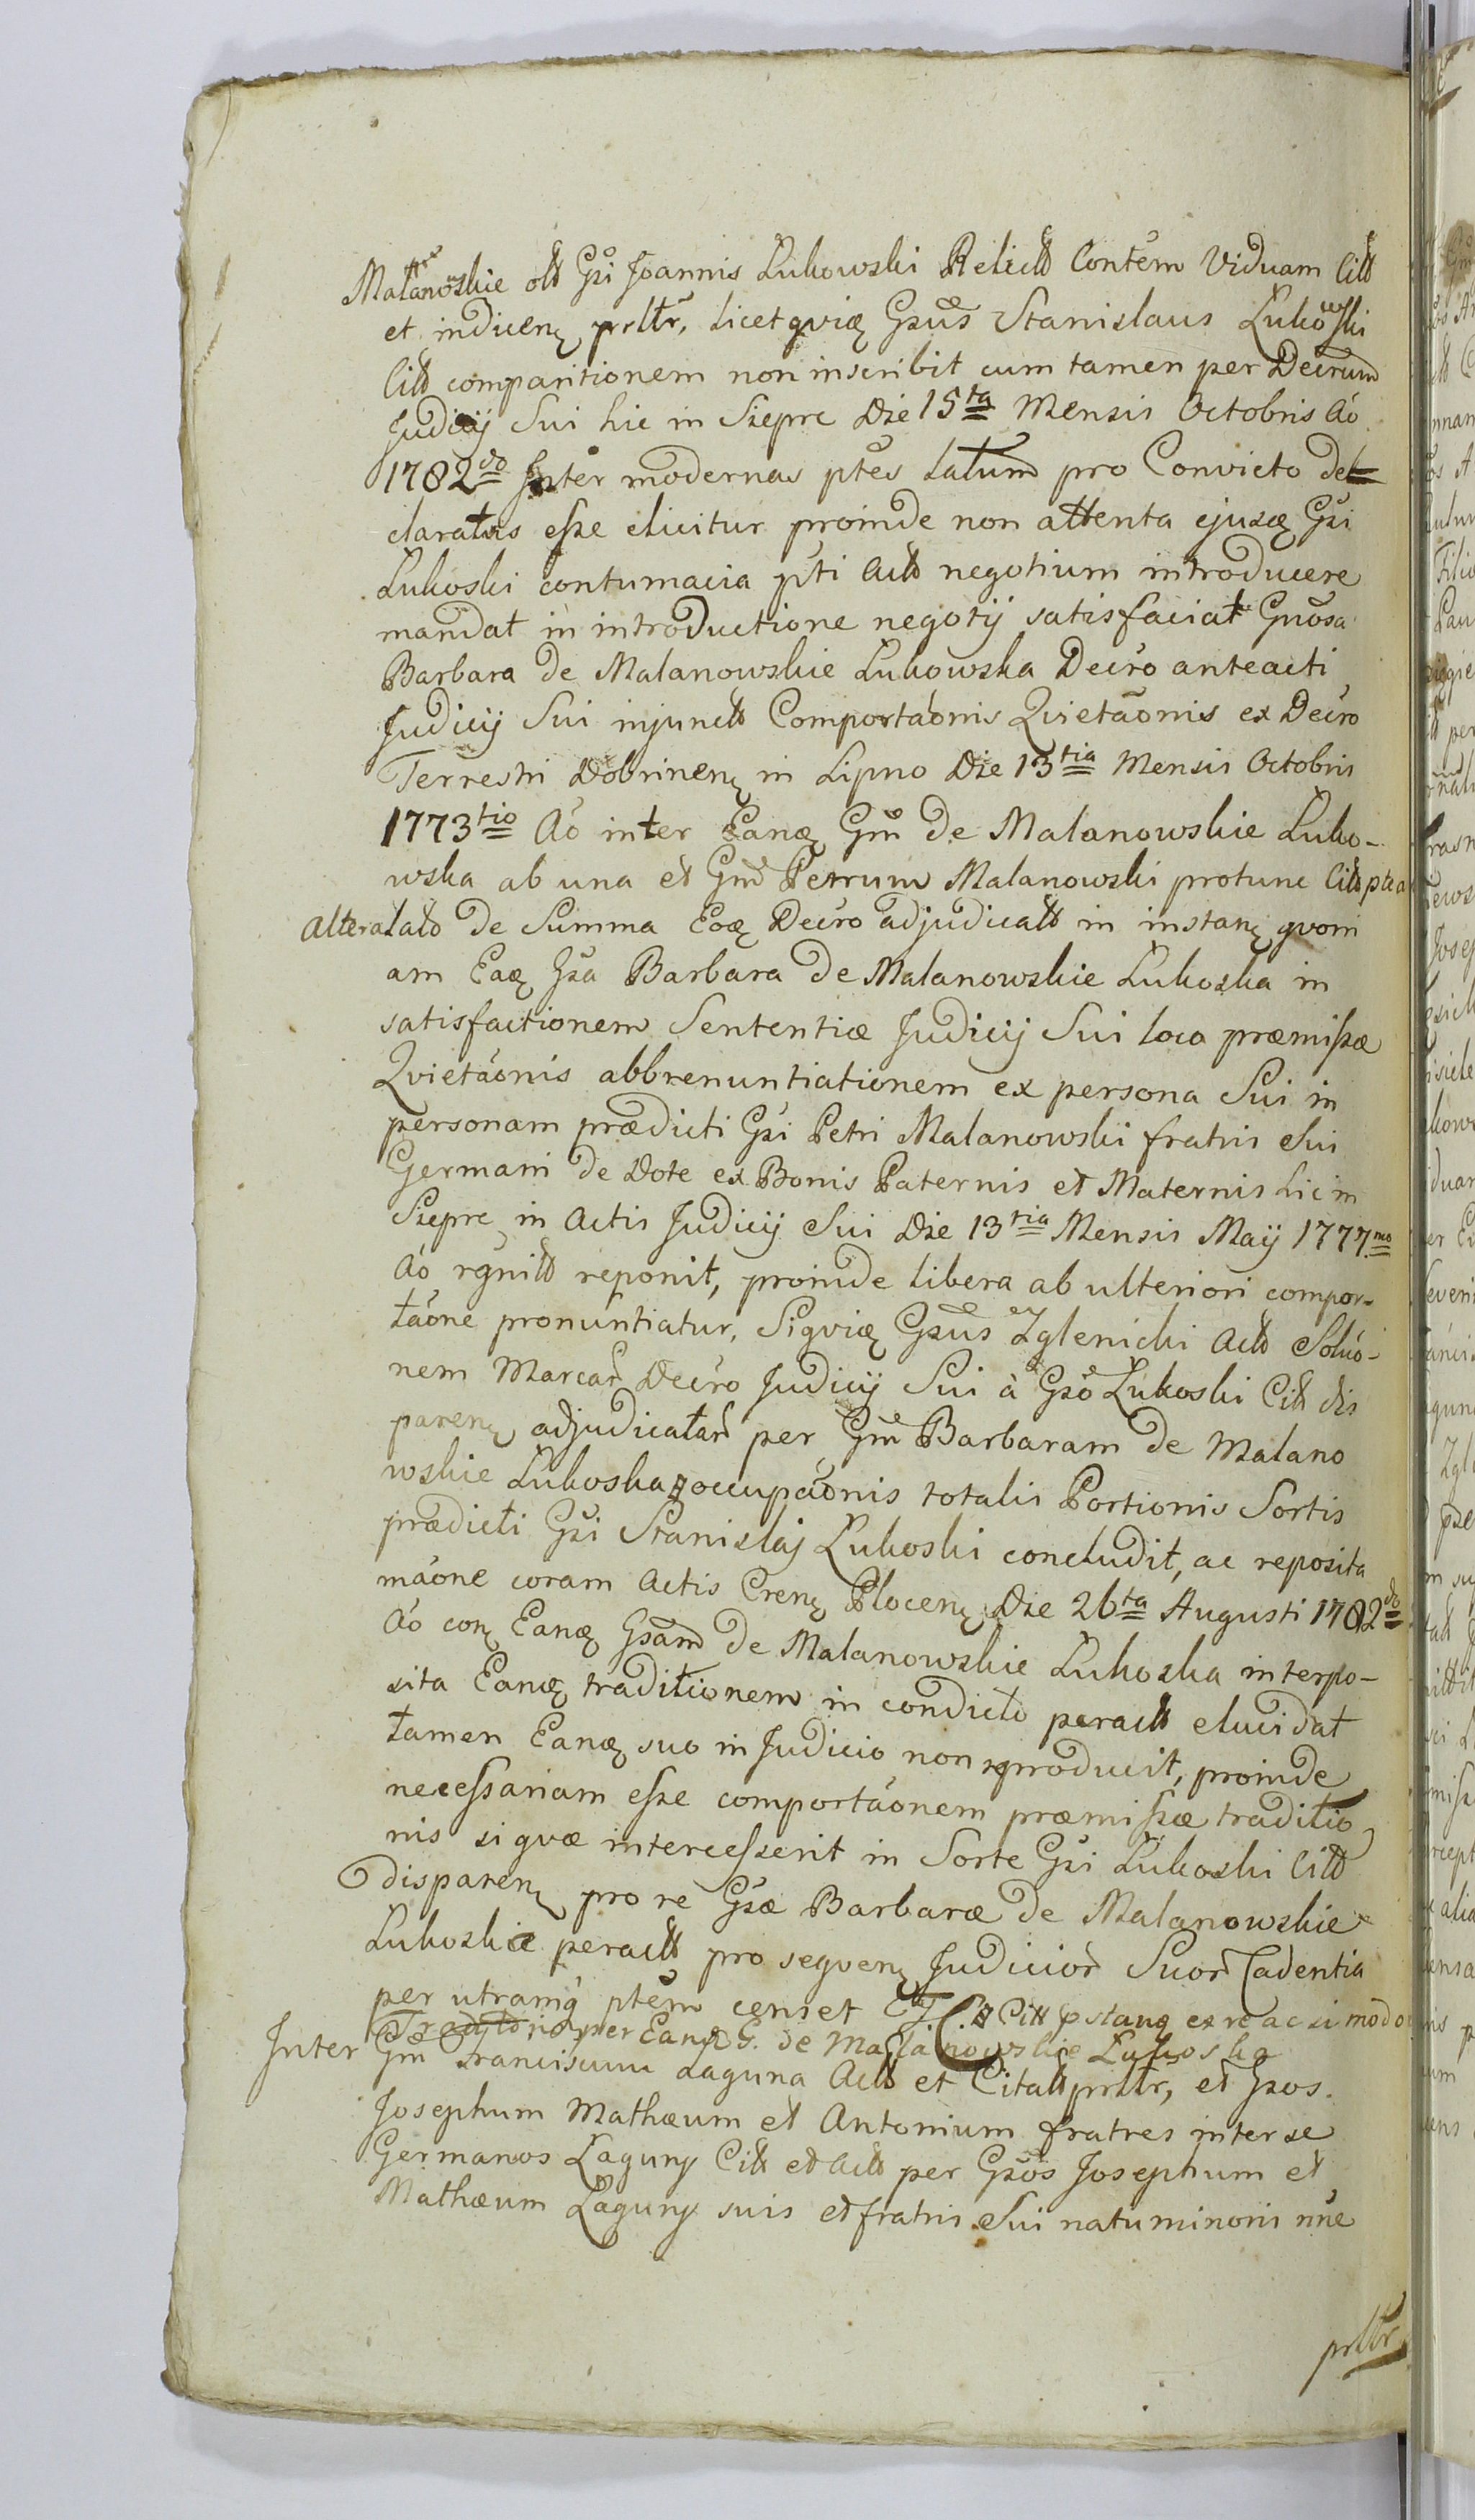 Malanoskie olt Gsi Joannis Lukowski Relictt Contem Viduam Citt
et indicenꝫ prlltr, licet qviꝫ Gsus Stanislaus Lukowski
Citt comparitionem non inscribit cum tamen per Decrum
Judicij Sui hic in Siepre Die 15ta Mensis Octobris Ao
1782do Inter modernas ptes latum pro Convicto de=
claratus esse elicitur proinde non attenta ejusꝫ Gsi
Lukoski contumacia pti Actt negotium introducere
mandat in introductione negotij satisfaciat Gnosa
Barbara de Malanowskie Lukowska Decro anteacti
Judicij Sui injunctt Comportaonis Qvietaonis ex Decro
Terrestri Dobrinenꝫ in Lipno Die 13tia Mensis Octobris
1773tio Ao inter Eanꝫ Gm de Malanowskie Luko-
wska ab una et Gm Petrum Malanowski protunc Citt ptea
altera lato de Summa Eoꝫ Decro adjudicatt in instanꝫ qvoni
am Eaꝫ Gsa Barbara de Malanowskie Lukoska in
satisfactionem Sententiæ Judicij Sui loco præmissæ
Qvietaonis abbrenuntiationem ex persona Sui in
personam prædicti Gsi Petri Malanowski fratris Sui
Germani de Dote ex Bonis Paternis et Maternis hic in
Siepre in Actis Judicij Sui Die 13tia Mensis Maij 1777mo
Ao rgnitt reponit, proinde libera ab ulteriori compor=
taone pronuntiatur, Siqviꝫ Gsus Zglenicki Actt Soluo-
nem Marcar Decro Judicij Sui à Gso Lukoski Citt dis
parenꝫ adjudicatar per Gm Barbaram de Malano
wskie Lukoska occupaonis totalis Portionis Sortis
prædicti Gsi Stanislaj Lukoski concludit, ac reposita
maone coram Actis Crenꝫ Plocenꝫ Die 26ta Augusti 1782do
Ao conꝫ Eanꝫ Gsam de Malanowskie Lukoska interpo-
sita Eanꝫ traditionem in condicto peractt elucidat
tamen Eanꝫ suo in Judicio non reproducit, proinde
necessariam esse comportaonem præmissæ traditio
nis si qvæ intercesserit in Sorte Gsi Lukoski Citt
disparenꝫ pro re Gsæ Barbaræ de Malanowskie
Lukoskie peractt pro seqvenꝫ Judicior Suor Cadentia
per utramq ptem censet Citt pstanꝫ ex re ac si modo
Traditonis per Eanꝫ G. de Malanowskie Lukoska
Inter Gm Franciscum Laguna Actt et Citatt prlltr, et Gsos
Josephum Mathæum et Antonium fratres inter se
Germanos Laguny Citt et Actt per Gsos Josephum et
Mathæum Laguny suis et fratris Sui natu minoris nnc
prlltr